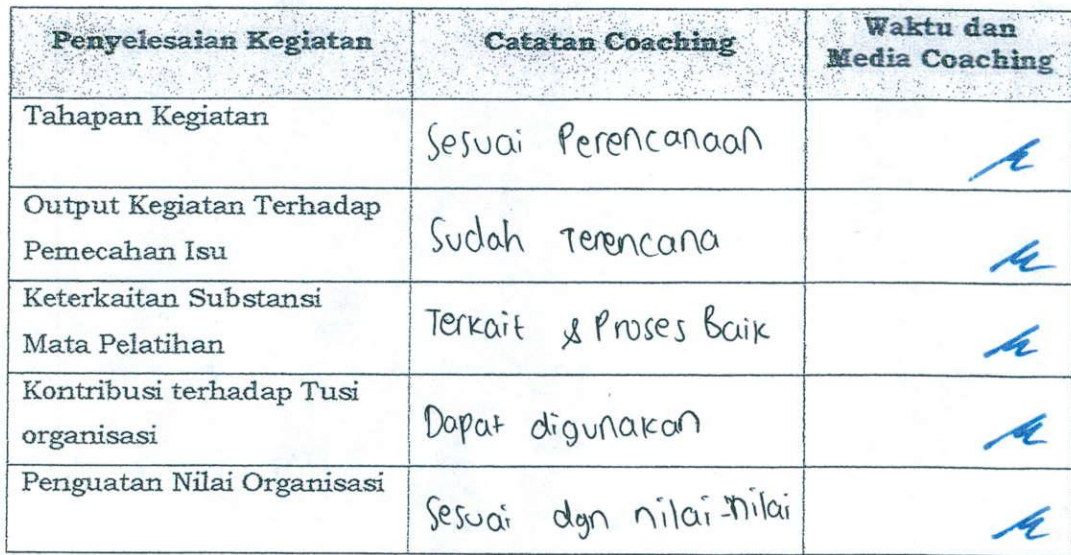 Penyelesaian Kegiatan
Catatan Coaching
Waktu dan
Media Coaching
Tahapan Kegiatan
Sesuai Perencanaan
Output Kegiatan Terhadap
Pemecahan Isu
Sudah Terencana
Keterkaitan Substansi
Mata Pelatihan
Terkait & Proses Baik
Kontribusi terhadap Tusi
organisasi
Dapat digunakan
Penguatan Nilai Organisasi
Sesuai dgn nilai-nilai